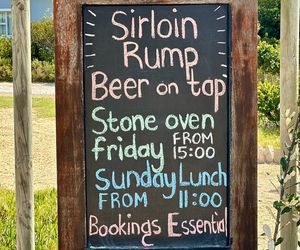 Sirloin
Rump
Beer on tap
Stone oven
friday FROM
15:00
Sunday Lunch
FROM 11:00
Bookings Essential